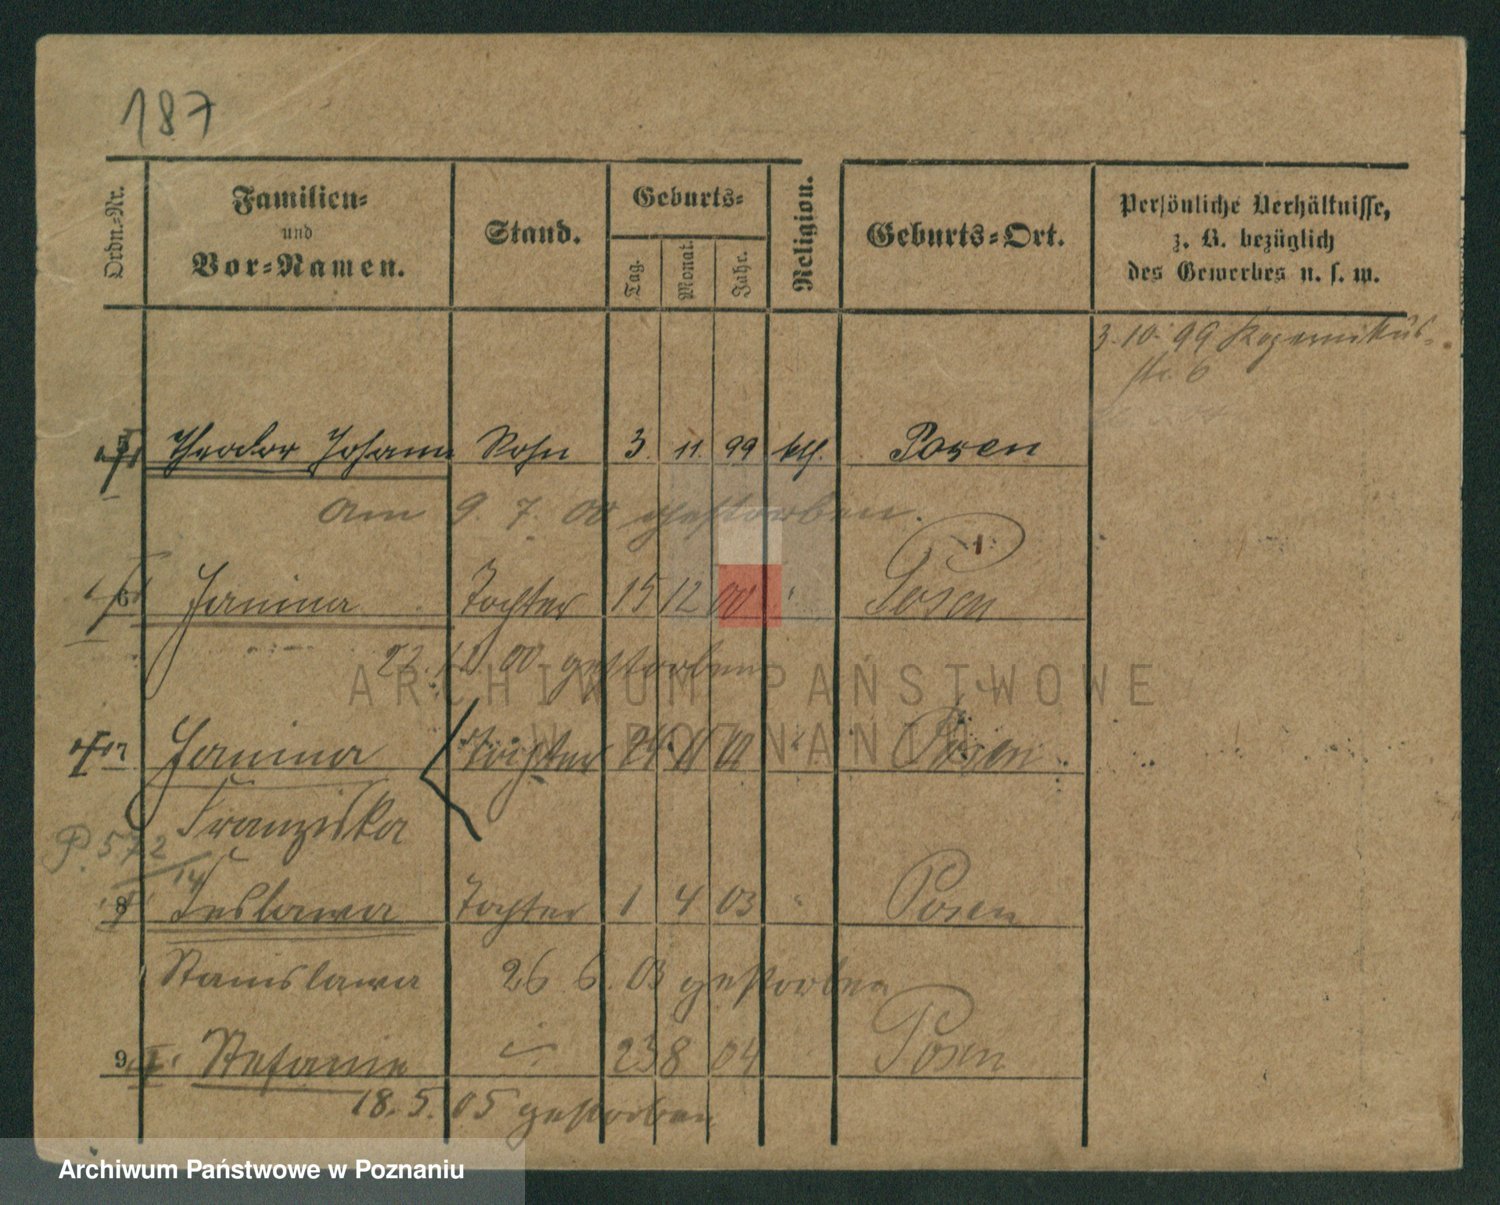 187
Ordn.-Nr. Familien- und Vor-Namen. Stand. Geburts- Tag. Monat. Jahr. Religion. Geburts-Ort. Persönliche Verhältnisse, z. B. bezüglich des Gewerbes u. s. w.
3. 10. 99 Kopernikus-
str. 6
5 Theodor Johann Sohn 3. 11. 99 kth. Posen
Am 9. 7. 00 gestorben.
6 Janina Tochter 15 12 00 " Posen
22. 12. 00 gestorben
ARCHIWUM PAŃSTWOWE
W POZNANIU
7 Janina Tochter 24 " Posen
Franziska
P. 572
14
8 Tochter 1 4 03 " Posen
Stanislawa 26 6. 03 gestorben
9 Stefanie 23 8 04 Posen
18. 5. 05 gestorben
Archiwum Państwowe w Poznaniu